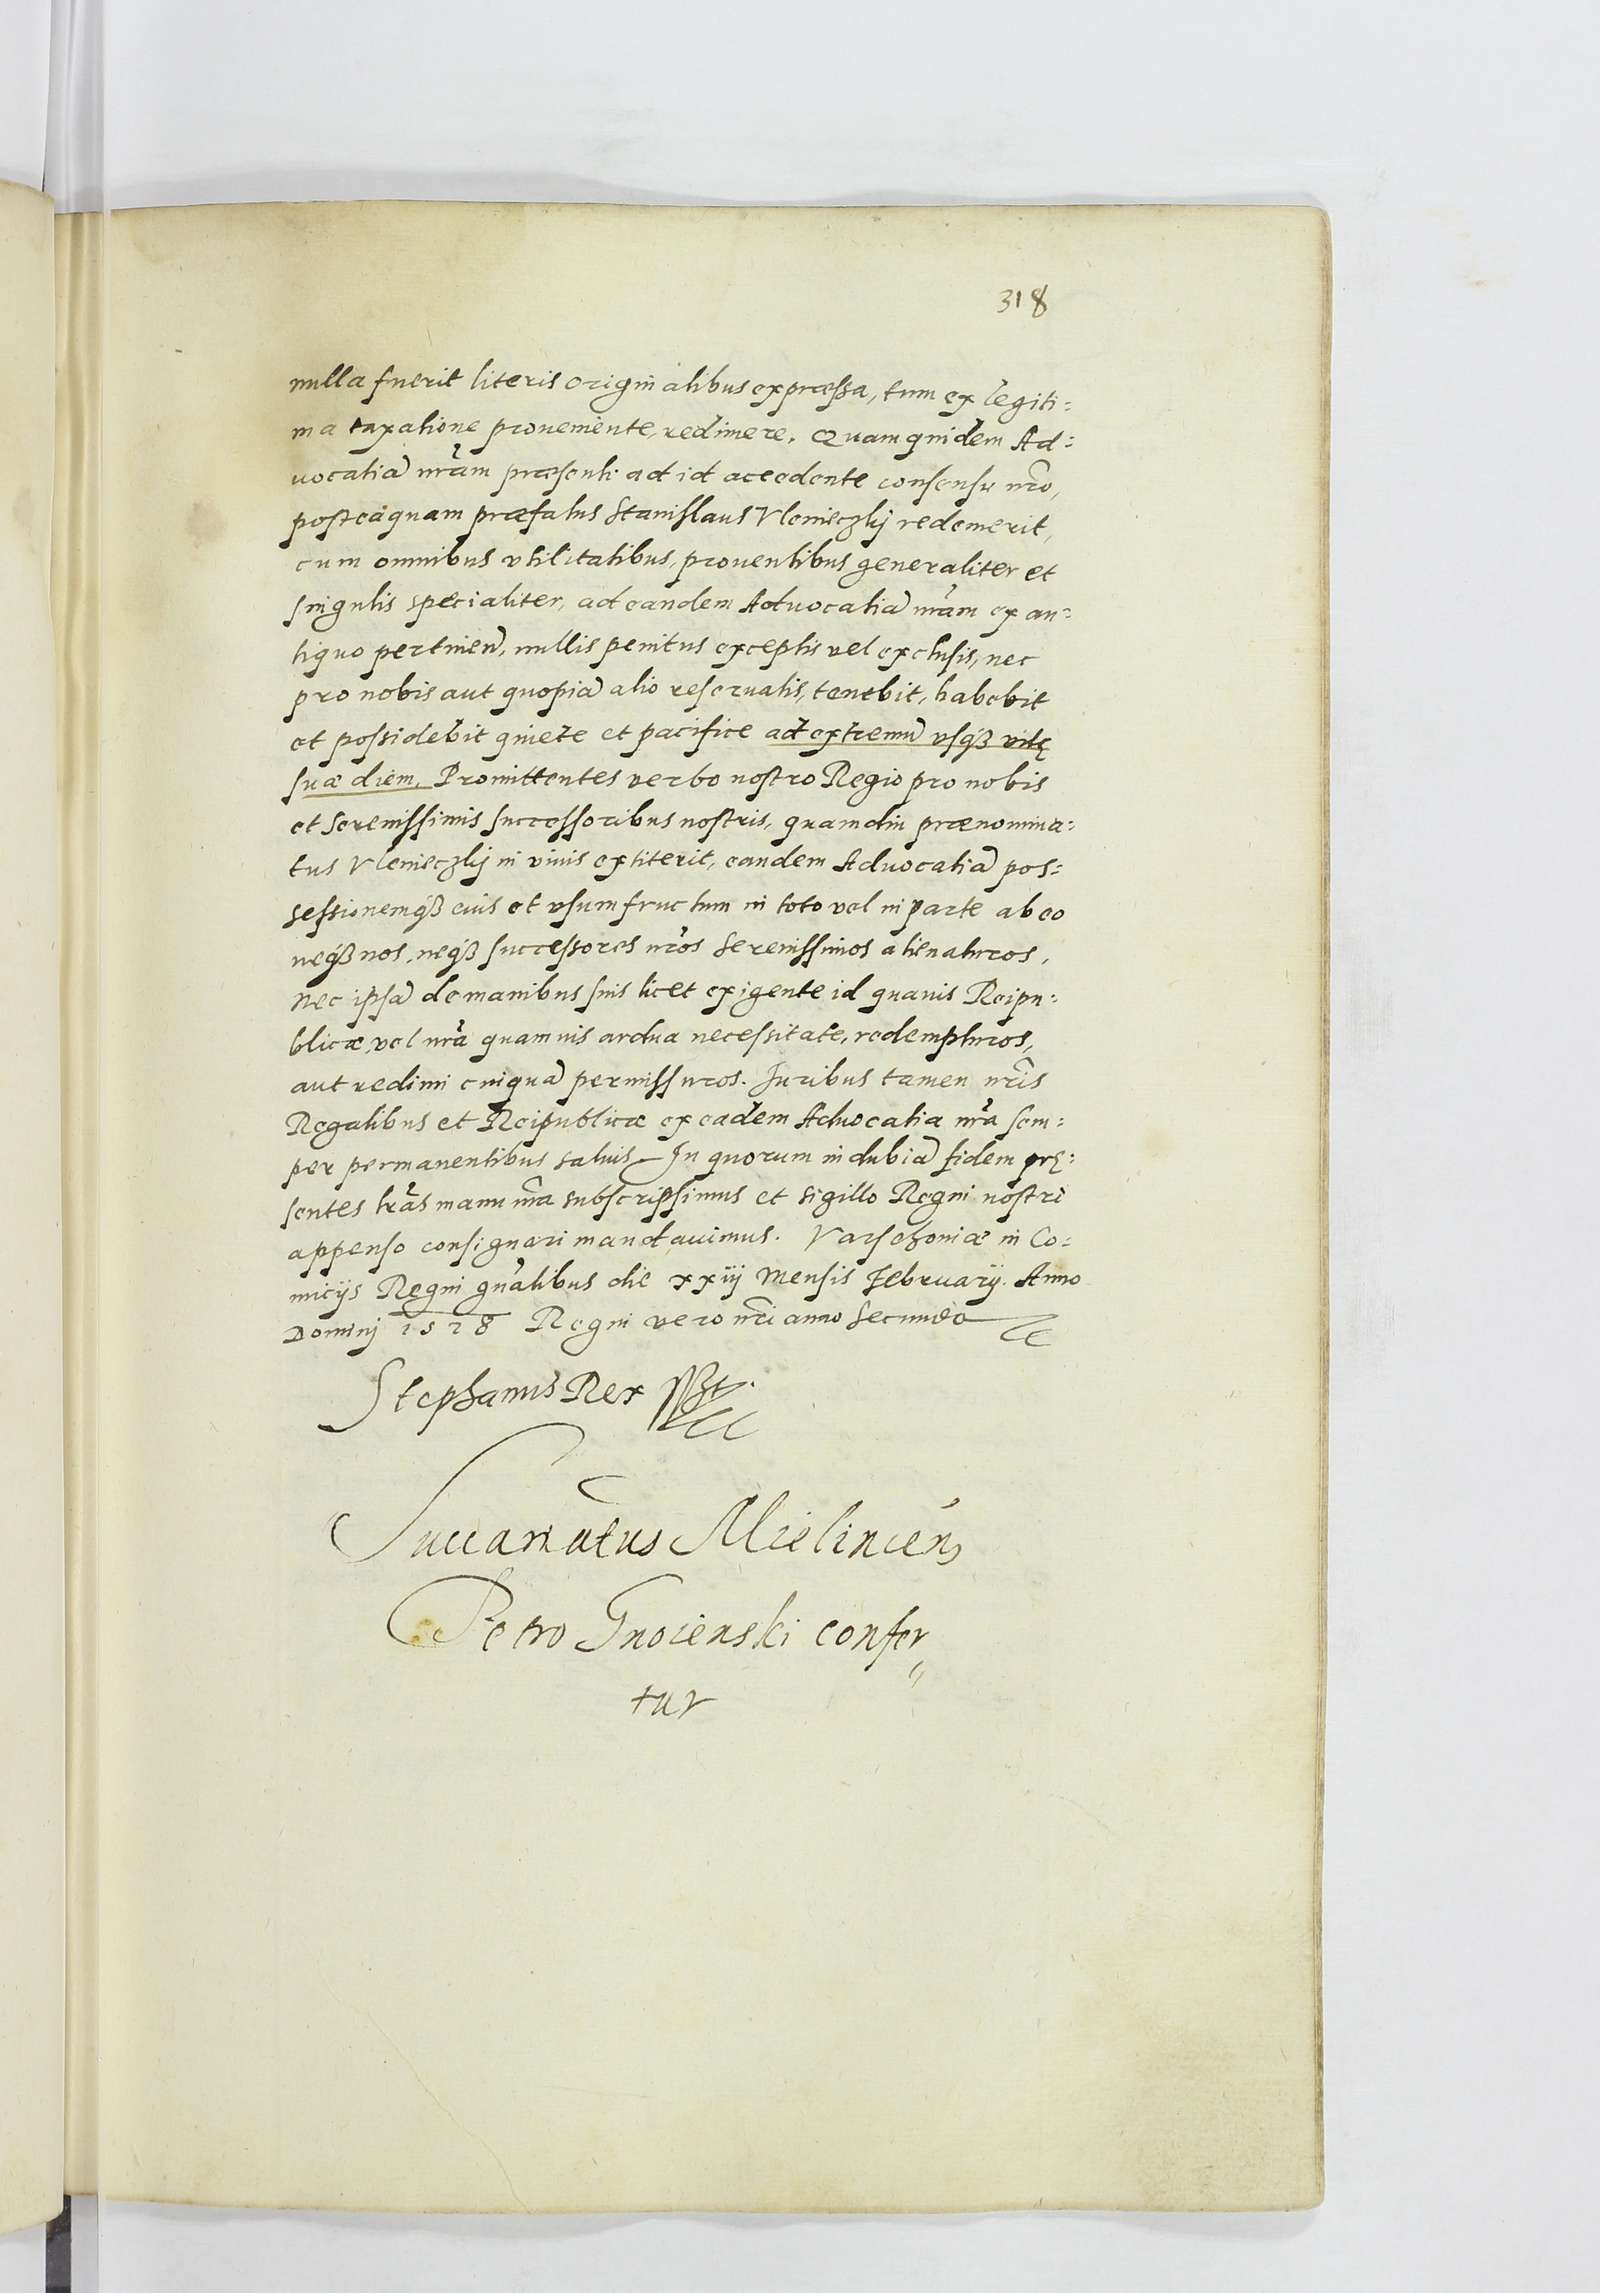 318
nulla fuerit literis originalibus expræssa, tum ex legiti:
ma taxatione proueniente, redimere. Quam quidem Ad:
uocatiã nr̃am præsenti ad id accedente consensu nr̃o,
posteaquam præfatus Stanislaus Vlenieczkÿ redemerit,
cum omnibus vtilitatibus, prouentibus generaliter et
singulis specialiter, ad eandem Aduocatiã nr̃am ex an:
tiquo pertineñ, nullis penitus exceptis vel exclusis, nec
pro nobis aut quopiã alio reseruatis, tenebit, habebit
et possidebit quiete et pacifice ad extremũ vsqꝫ vitę
suæ diem. Promittentes verbo nostro Regio pro nobis
et Serenissimis successoribus nostris, quamdiu prænomina:
tus Vlenieczkÿ in viuis extiterit, eandem Aduocatiã pos:
sessionemqꝫ eius et vsumfructum in toto vel in parte ab eo
neqꝫ nos, neqꝫ successores nr̃os Serenissimos alienaturos,
nec ipsã de manibus suis licet exigente id quauis Reipu:
blicæ, vel nr̃a quamuis ardua necessitate, redempturos,
aut redimi cuiquã permissuros. Iuribus tamen nr̃is
Regalibus et Reipublicæ ex eadem Aduocatia nr̃a sem:
per permanentibus saluis. In quorum indubiã fidem prę:
sentes lr̃as manu nr̃a subscripsimus et sigillo Regni nostri
appenso consignari mandauimus. Varschouiæ in Co:
micijs Regni gñalibus die xxiij Mensis Februarÿ. Anno
Dominj 1578 Regni vero nr̃i anno Secundo
Stephanus Rex sst.
Succamatus Mielinceñ
Petro Gnoienski confer
tur